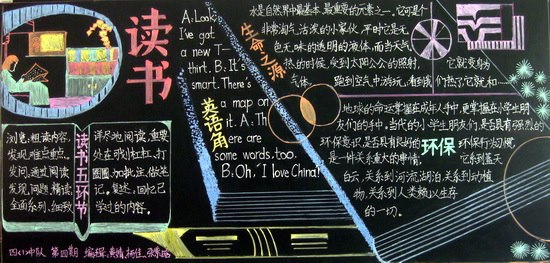 读书
A: Look,
I've got
a new T-
shirt. B. It's
smart. There's
a map on
it. A. Th
ere are
some words, too.
B: Oh, "I love China!
英语角
生命之源
水是自然界中最基本、最重要的元素之一,它可是个
非常淘气、活泼的小家伙,平时它是无
色、无味的透明的液体,而当天气
热的时候,受到太阳公公的照射,
它就变身为
气体
跑到空气中游玩,看到我们热了它就和
地球的命运掌握在成年人手中,更掌握在小学生朋
友们的手中。当代的小学生朋友们,是否具有强烈的
环保意识,是否具有良好的
环保
环保行为习惯,
是一件关系重大的事情,
它关系到蓝天
白云,关系到河流湖泊,关系到动植
物,关系到人类赖以生存
的一切。
读书五环节
浏览:粗读内容,
发现难点重点。
发问:通过阅读
发现问题,精读:
全面系列,细致
详尽地阅读,重要
处在我划杠杠,打
圈圈,加批注,做笔
记。复述:回忆已
学过的内容。
四(1)中队 第四期 编辑: